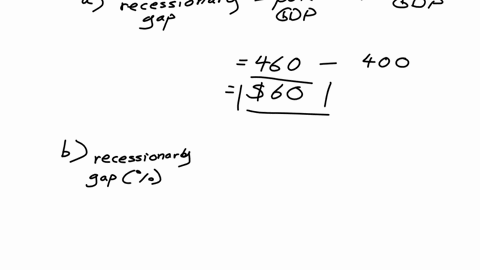 a) recessionary = GDP GDP
gap
= 460 — 400
= $60
b) recessionary
gap (%)